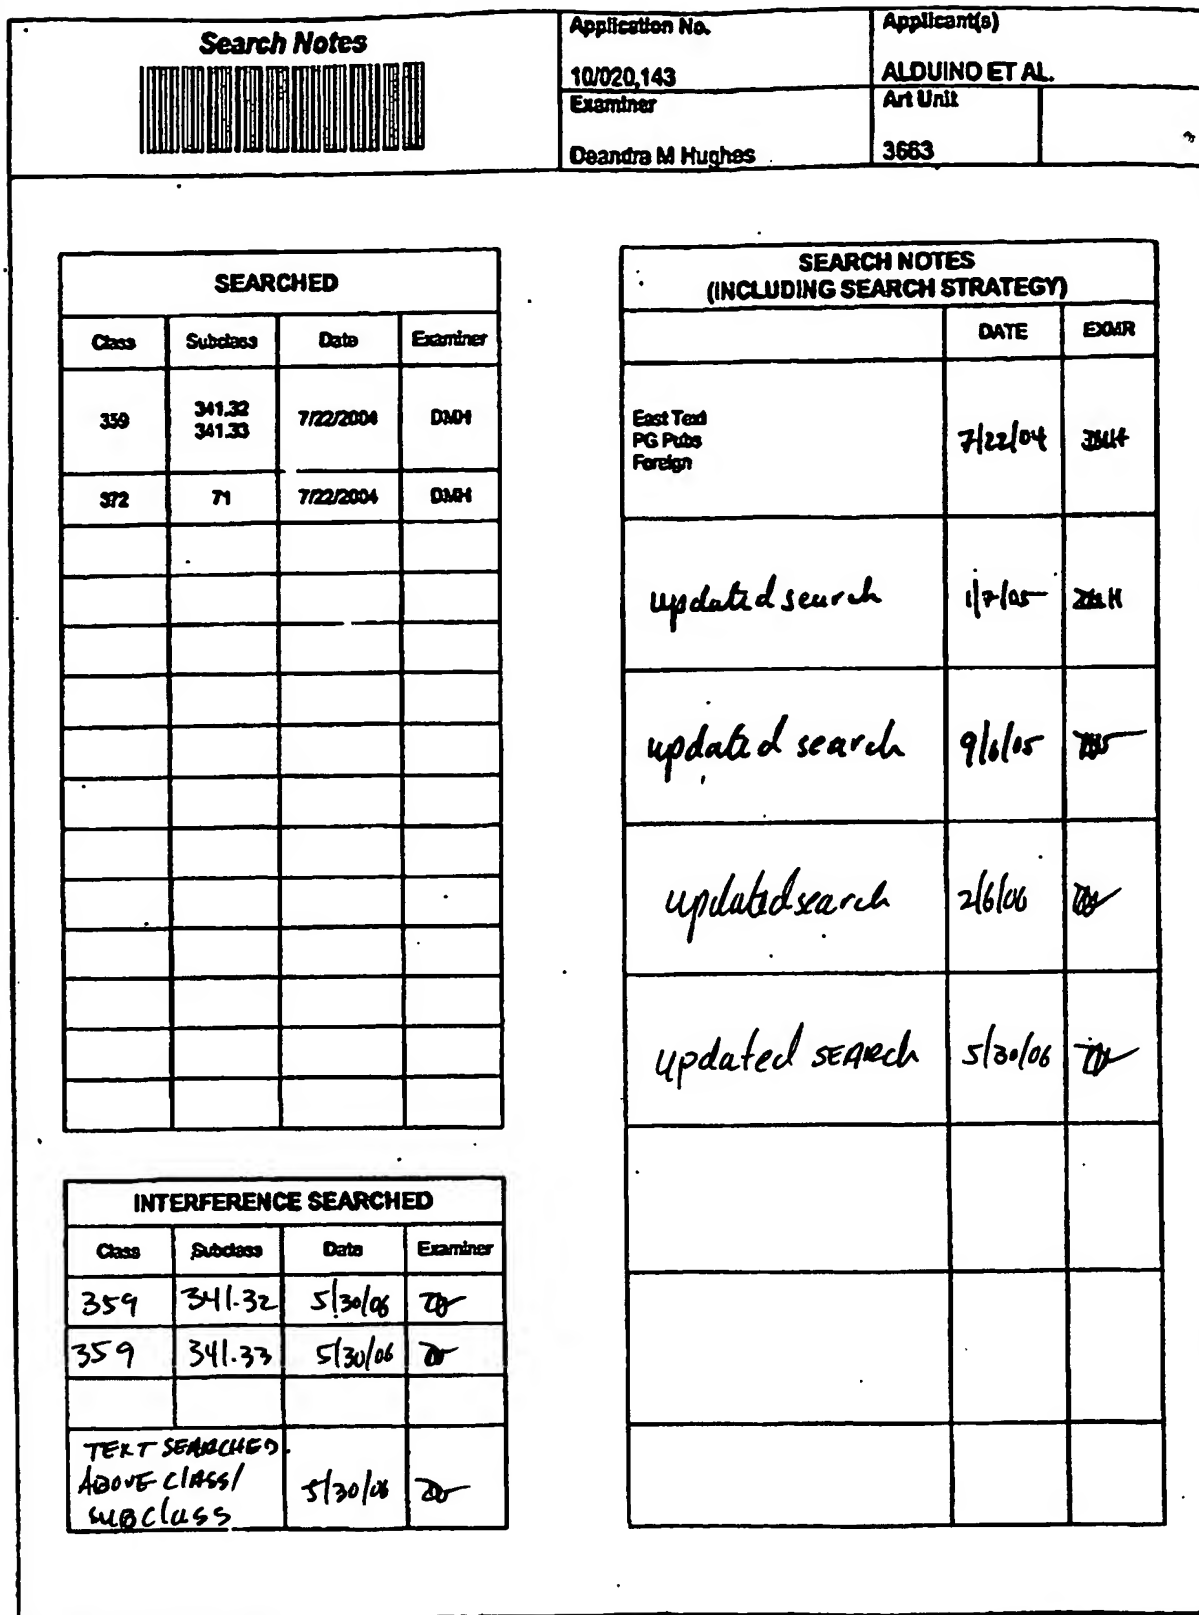 Search Notes
Application No.
Applicant(s)
10/020,143
ALDUINO ET AL.
Examiner
Art Unit
Deandra M Hughes
3663
SEARCHED
Class Subclass Date Examiner
359 341.32 7/22/2004 DMH
341.33
372 71 7/22/2004 DMH
INTERFERENCE SEARCHED
Class Subclass Date Examiner
359 341.32 5/30/06
359 341.33 5/30/06
TEXT SEARCHED
ABOVE CLASS/
SUBCLASS 5/30/06
SEARCH NOTES
(INCLUDING SEARCH STRATEGY)
DATE EXMR
East Text
PG Pubs 7/22/04 DMH
Foreign
updated search 1/7/05 DMH
updated search 9/6/05
updated search 2/6/06
updated SEARch 5/30/06